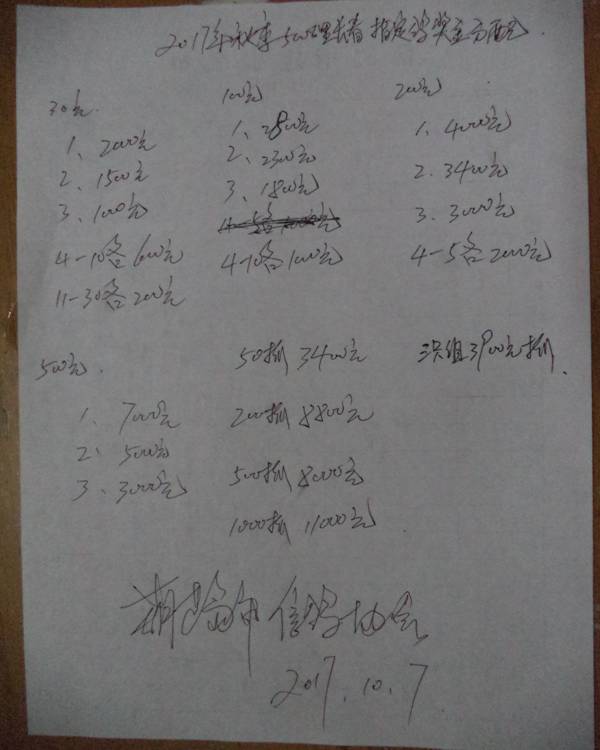 2017年秋季500里长春指定鸽奖金分配
30元
1、2000元
2、1500元
3、1000元
4-10各600元
11-30各200元
100元
1、2800元
2、2300元
3、1800元
4-10各1000元
200元
1、4000元
2.3400元
3.3000元
4-5各2000元
500元.
1、7000元
2、5000元
3、3000元
50抓3400元
200抓8800元
500抓8000元
1000抓11000元
三只组3900元抓.
市信鸽协会
2017.10.7